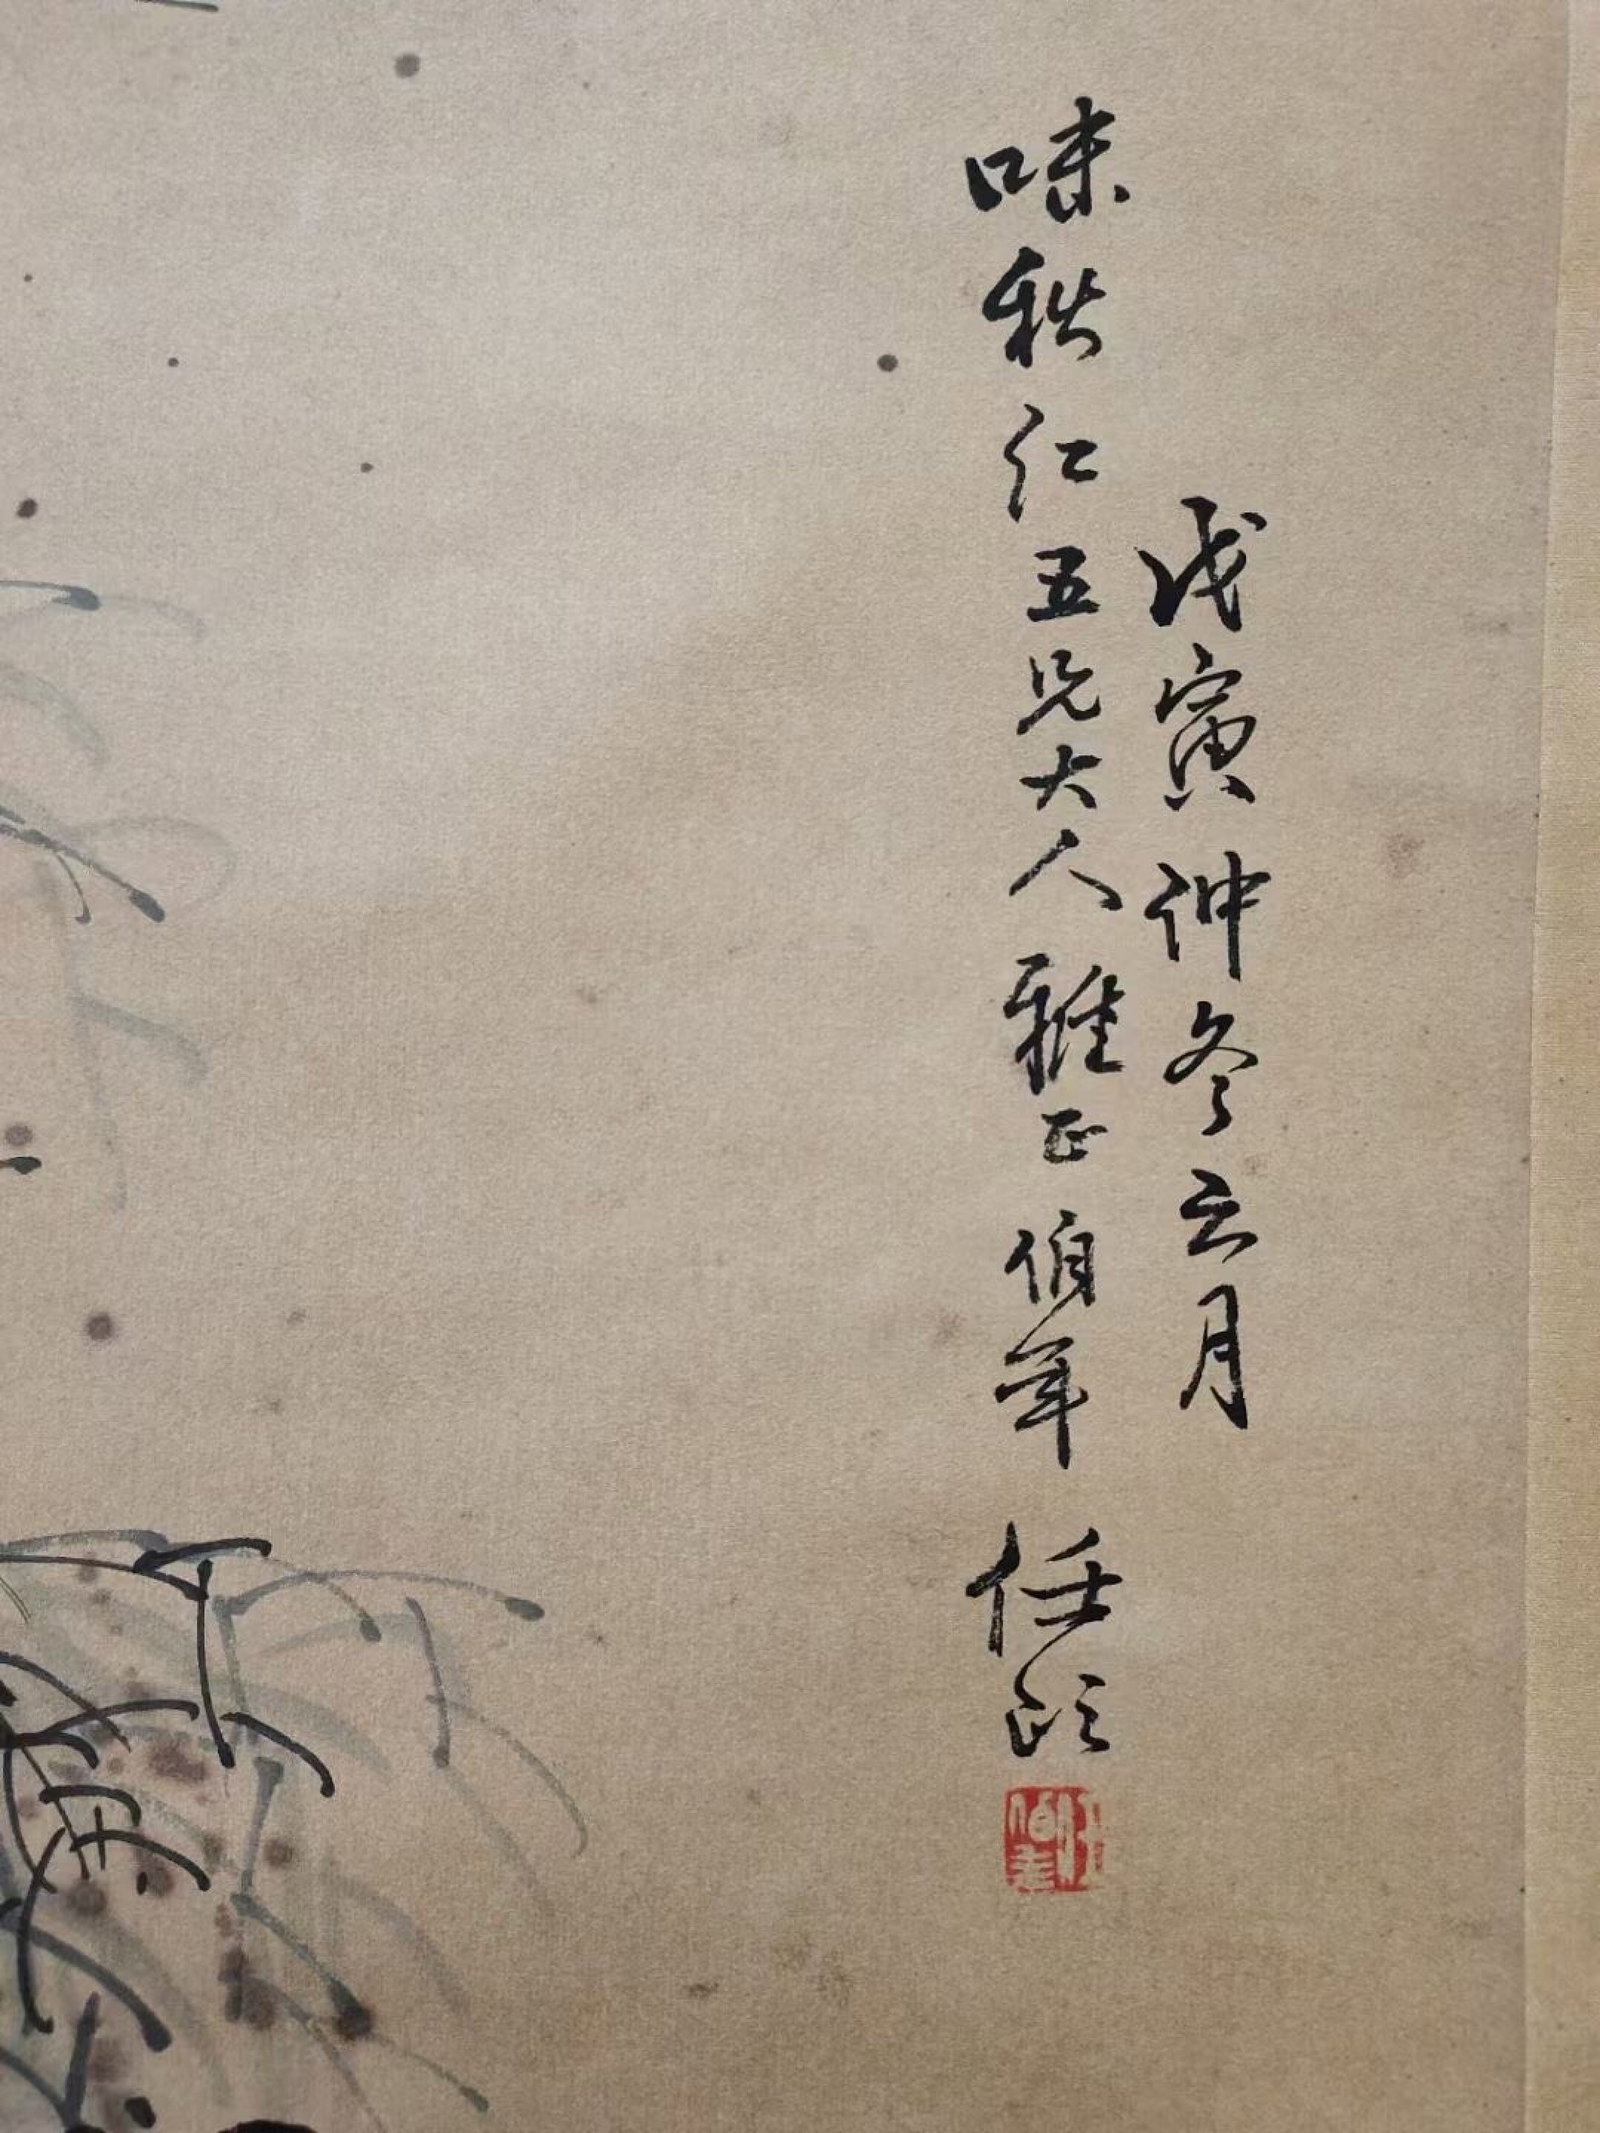 戊寅仲冬之月
味秋仁五兄大人雅正伯年任頤
任伯年